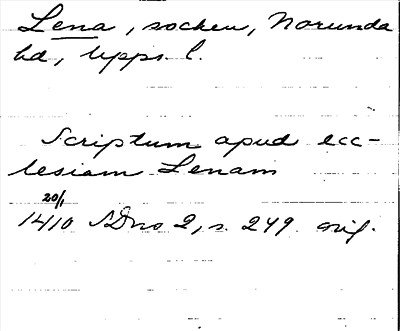 Lena, socken, Norunda
hd, Upps. l.
Scriptum apud ecc-
lesiam Lenam
20/1
1410 SDns 2, s. 249. orig.